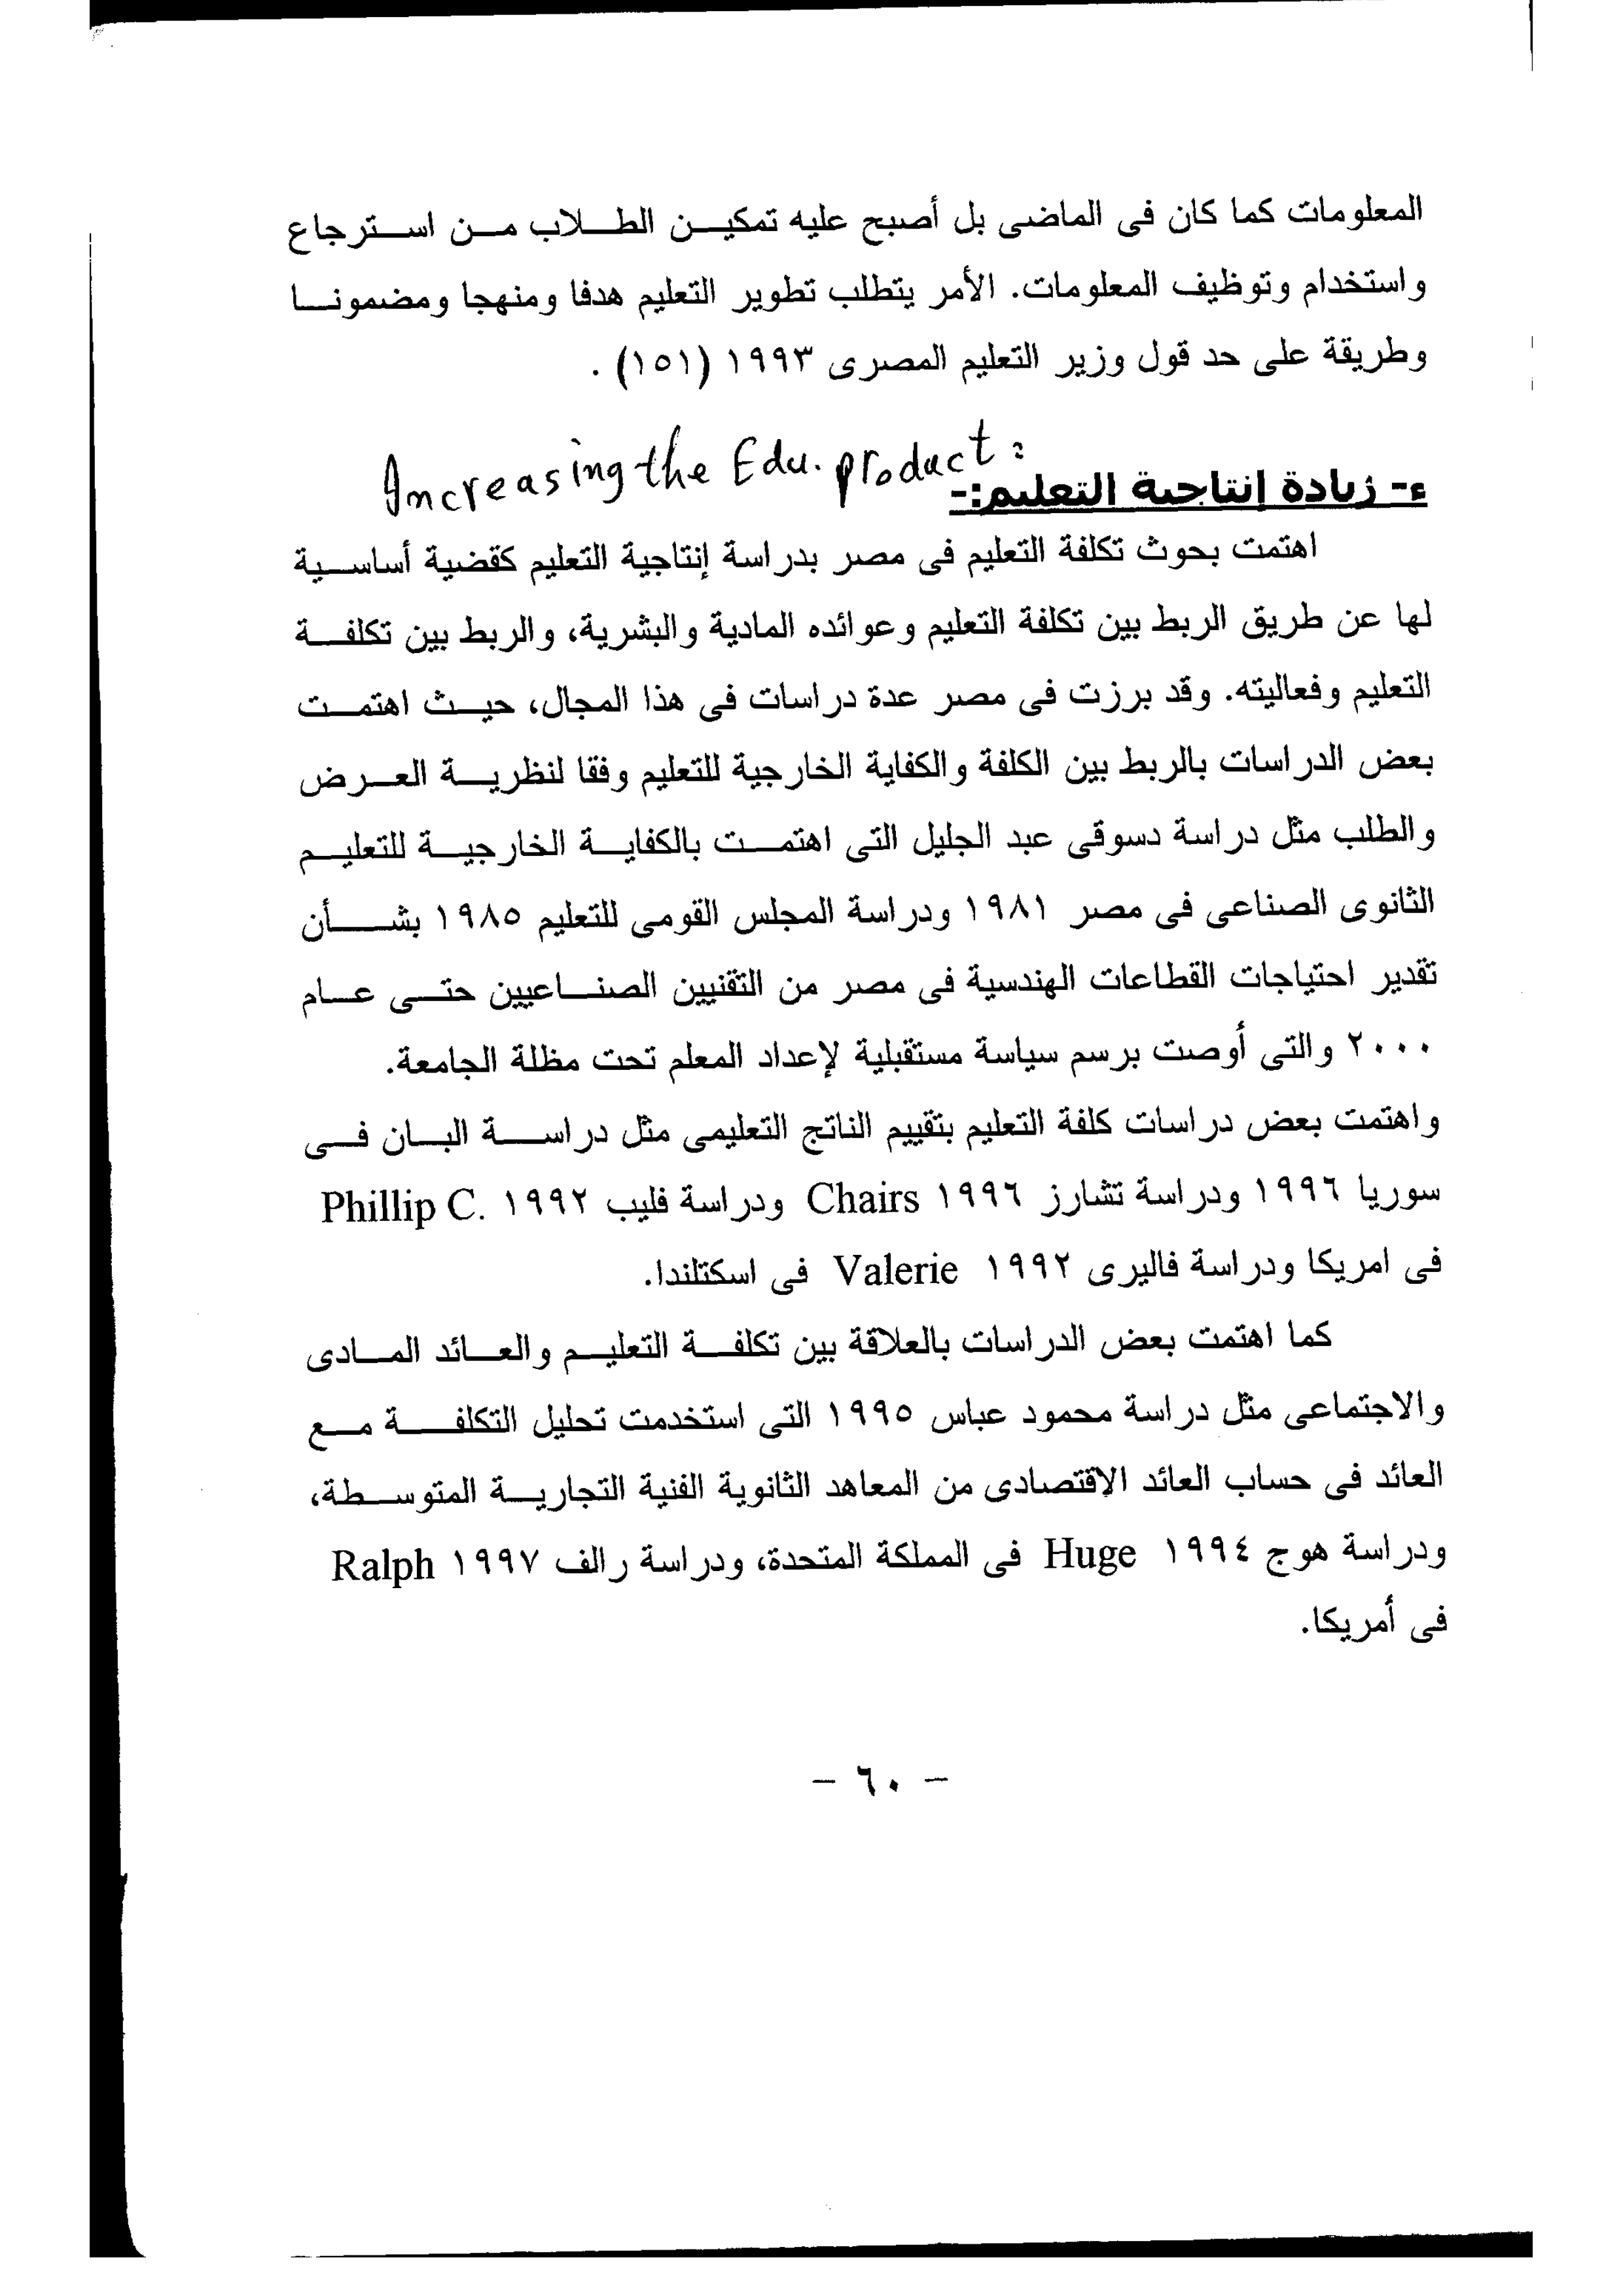 المعلومات كما كان فى الماضى بل أصبح عليه تمكين الطلاب من استرجاع
واستخدام وتوظيف المعلومات. الأمر يتطلب تطوير التعليم هدفا ومنهجا ومضمونا
وطريقة على حد قول وزير التعليم المصرى ١٩٩٣ (١٥١) .
Increasing the Edu. product :
ء- زيادة إنتاجية التعليم:-
اهتمت بحوث تكلفة التعليم فى مصر بدراسة إنتاجية التعليم كقضية أساسية
لها عن طريق الربط بين تكلفة التعليم وعوائده المادية والبشرية، والربط بين تكلفة
التعليم وفعاليته. وقد برزت فى مصر عدة دراسات فى هذا المجال، حيث اهتمت
بعض الدراسات بالربط بين الكلفة والكفاية الخارجية للتعليم وفقا لنظرية العرض
والطلب مثل دراسة دسوقى عبد الجليل التى اهتمت بالكفاية الخارجية للتعليم
الثانوى الصناعى فى مصر ١٩٨١ ودراسة المجلس القومى للتعليم ١٩٨٥ بشأن
تقدير احتياجات القطاعات الهندسية فى مصر من التقنيين الصناعيين حتى عام
٢٠٠٠ والتى أوصت برسم سياسة مستقبلية لإعداد المعلم تحت مظلة الجامعة.
واهتمت بعض دراسات كلفة التعليم بتقييم الناتج التعليمى مثل دراسة البان فى
سوريا ١٩٩٦ ودراسة تشارز Chairs ١٩٩٦ ودراسة فليب Phillip C. ١٩٩٢
فى امريكا ودراسة فاليرى Valerie ١٩٩٢ فى اسكتلندا.
كما اهتمت بعض الدراسات بالعلاقة بين تكلفة التعليم والعائد المادى
والاجتماعى مثل دراسة محمود عباس ١٩٩٥ التى استخدمت تحليل التكلفة مع
العائد فى حساب العائد الإقتصادى من المعاهد الثانوية الفنية التجارية المتوسطة،
ودراسة هوج Huge ١٩٩٤ فى المملكة المتحدة، ودراسة رالف Ralph ١٩٩٧
فى أمريكا.
- ٦٠ -